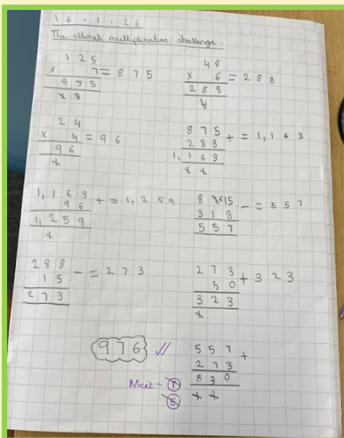 16.1.26
The ultimate multiplication challenge.
125
x 7 = 875
875
48
x 6 = 288
288
24
x 4 = 96
96
875
288 + = 1,163
1,163
1,163
96 + = 1,259
1,259
8 7 15
318 - = 557
557
288
15 - = 273
273
273
50 + 323
323
976
557
273 +
830
Merit -